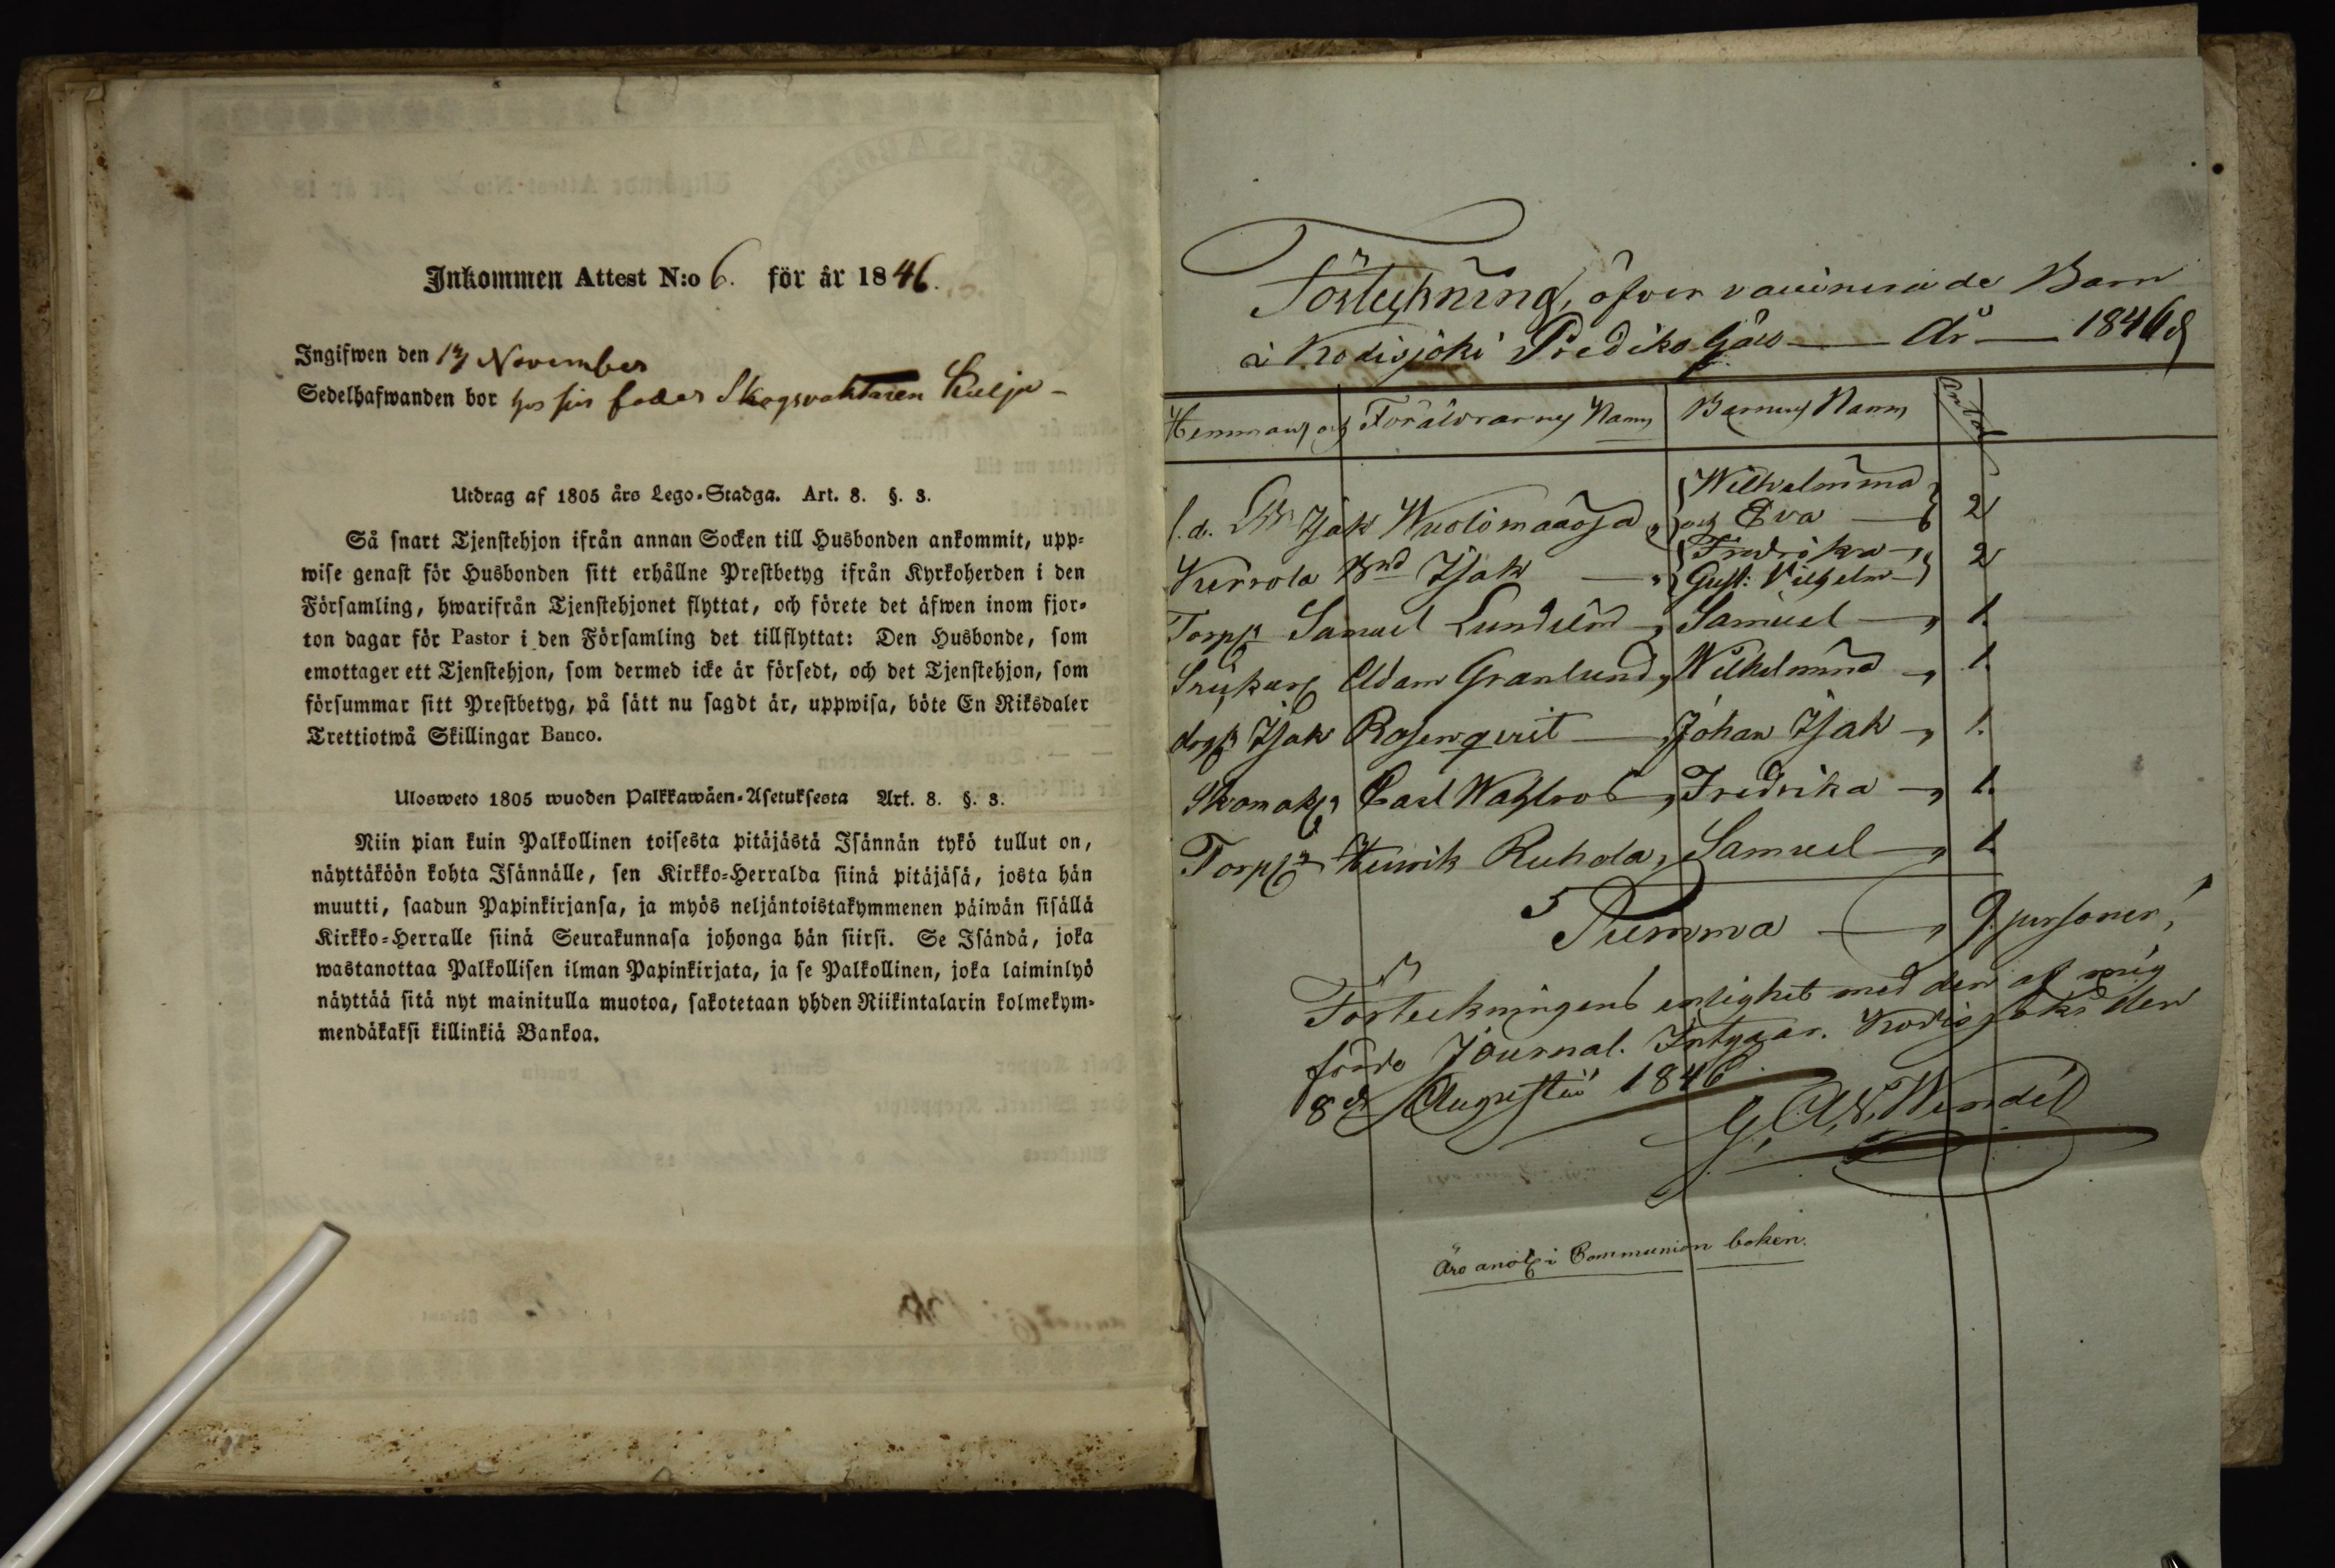 Inkommen Attest N:o 6. för år 1846.
Ingifwen den 17 November
Sedelhafwanden bor hos sin fader Skogsvaktaren
Utdrag af 1805 års Lego-Stadga. Art. 8. §. 3.
Så snart Tjenstehjon ifrån annan Socken till Husbonden ankommit, upp-
wise genast för Husbonden sitt erhållne Prestbetyg ifrån Kyrkoherden i den
Församling, hwarifrån Tjenstehjonet flyttat, och förete det äfwen inom fjor-
ton dagar för Pastor i den Församling det tillflyttat: Den Husbonde, som
emottager ett Tjenstehjon, som dermed icke är försedt, och det Tjenstehjon, som
försummar sitt Prestbetyg, på sätt nu sagdt är, uppwisa, böte En Riksdaler
Trettiotwå Skillingar Banco.
Ulosweto 1805 wuoden Palkkawäen-Asetuksesta Art. 8. §. 3.
Niin pian kuin Palkollinen toisesta pitäjästä Isännän tykö tullut on,
näyttäköön kohta Isännälle, sen Kirkko-Herralda siinä pitäjäsä, josta hän
muutti, saadun Papinkirjansa, ja myös neljäntoistakymmenen päiwän sisällä
Kirkko-Herralle siinä Seurakunnasa johonga hän siirsi. Se Isändä, joka
wastanottaa Palkollisen ilman Papinkirjata, ja se Palkollinen, joka laiminlyö
näyttää sitä nyt mainitulla muotoa, sakotetaan yhden Riikintalarin kolmekym-
mendäkaksi killinkiä Bankoa.
Förteckning, öfver vaccinerade Barn
i Kodisjoki Prediko Gäll — År — 1846
Hemmans och Föräldrarnes Namn Barnens Namn Antal
Isak Wuolimaaosa Wilhelmina
och Eva — 2
Kurrola Isak — Fredrika —
Gust: Vilhelm — 2
Torp Samuel Lundelin Samuel — 1.
Adam Granlund, Wilhelmina — 1.
Isak Rosenqvist — Johan Isak — 1.
Skomak Carl Wahlros, Fredrika — 1.
Torp Henrik Ruhola, Samuel — 1.
Summa — 9 personer,
Förteckningens enlighet med den af mig
förde Journal. Intygar. Kodisjoki den
8de Augustii 1846
G. A. W. Wendel
Äro anot i Communion boken.